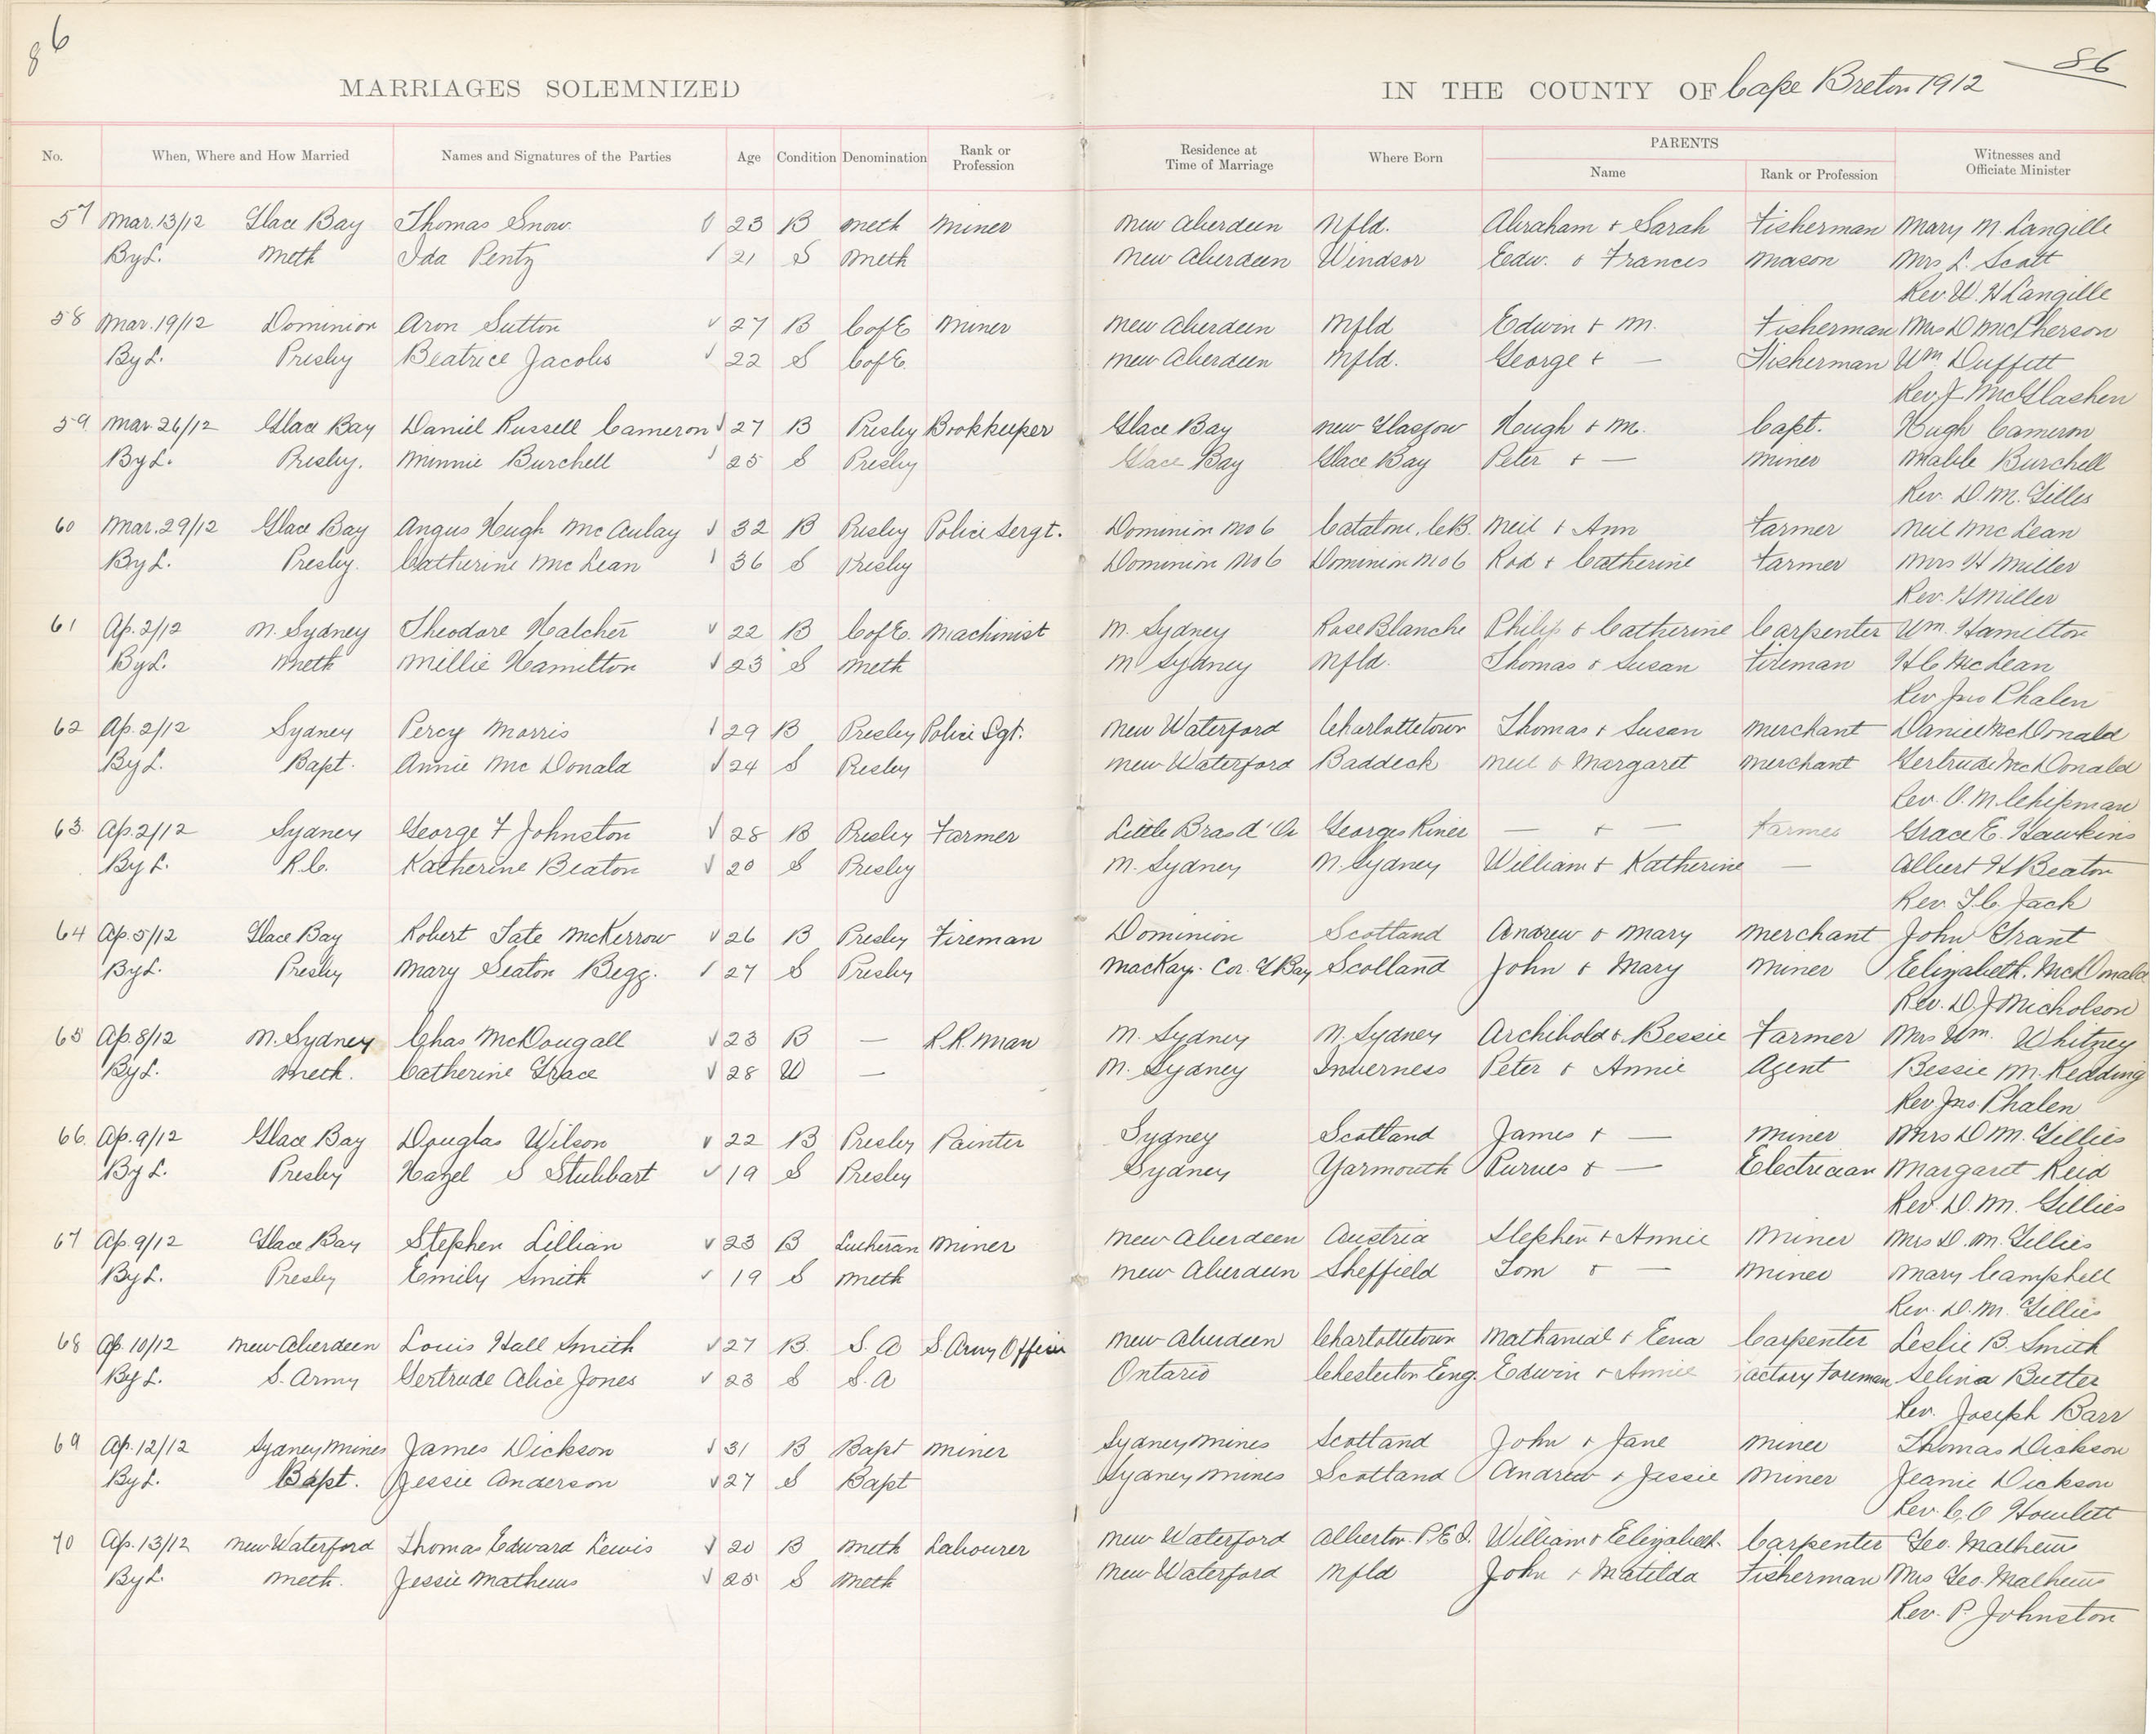 86
86
MARRIAGES SOLEMNIZED IN THE COUNTY OF Cape Breton 1912
No. When, Where and How Married Names and Signatures of the Parties Age Condition Denomination Rank or Profession Residence at Time of Marriage Where Born PARENTS Name Rank or Profession Witnesses and Officiate Minister
57 Mar. 13/12 Glace Bay Thomas Snow. 23 B Meth Miner New Aberdeen Nfld. Abraham + Sarah Fisherman Mary M. Langille
By L. Meth Ida Pentz 21 S Meth New Aberdeen Windsor Edw. & Frances Mason Mrs L. Scott
Rev. W. H Langille
58 Mar. 19/12 Dominion Aron Sutton 27 B C of E Miner New Aberdeen Nfld Edwin + M. Fisherman Mrs D McPherson
By L. Presby Beatrice Jacobs 22 S C of E. New Aberdeen Nfld. George + — Fisherman Wm Duffett
Rev. J McGlashen
59. Mar. 26/12 Glace Bay Daniel Russell Cameron 27 B Presby Bookkeeper Glace Bay New Glasgow Hugh + M. Capt. Hugh Cameron
By L. Presby. Minnie Burchell 25 S Presby Glace Bay Glace Bay Peter + — Miner Mable Burchell
Rev. D. M. Gillis
60 Mar. 29/12 Glace Bay Angus Hugh McAulay 32 B Presby Police Sergt. Dominion No 6 Catalone, C.B. Neil + Ann Farmer Neil McLean
By L. Presby. Catherine McLean 36 S Presby Dominion No 6 Dominion No 6 Rod + Catherine Farmer Mrs H Miller
Rev. H Miller
61 Ap. 2/12 N. Sydney Theodore Hatcher 22 B C of E. Machinist N. Sydney Rose Blanche Philip & Catherine Carpenter Wm. Hamilton
By L. Meth Millie Hamilton 23 S Meth N Sydney Nfld. Thomas & Susan Fireman H C McLean
Rev Jno Phalen
62 Ap. 2/12 Sydney Percy Morris 29 B Presby Police Sgt. New Waterford Charlottetown Thomas + Susan Merchant Daniel McDonald
By L. Bapt. Annie McDonald 24 S Presby New Waterford Baddeck Neil & Margaret Merchant Gertrude McDonald
Rev. O. M. Chipman
63. Ap. 2/12 Sydney George F Johnston 28 B Presby Farmer Little Bras d'Or Georges River — + — Farmer Grace E. Hawkins
By L. R.C. Katherine Beaton 20 S Presby N. Sydney N. Sydney William + Katherine — Albert H Beaton
Rev. T. C. Jack
64 Ap. 5/12 Glace Bay Robert Tate McKerrow 26 B Presby Fireman Dominion Scotland Andrew & Mary Merchant John Grant
By L. Presby Mary Seaton Begg. 27 S Presby MacKay. Cor. G Bay Scotland John + Mary Miner Elizabeth. McDonald
Rev. D. J Nicholson
65 Ap. 8/12 N. Sydney Chas McDougall 23 B — R.R. Man N. Sydney N. Sydney Archibald & Bessie Farmer Mrs Wm. Whitney
By L. Meth. Catherine Grace 28 W — N. Sydney Inverness Peter & Annie Agent Bessie M. Redding
Rev Jno. Phalen
66. Ap. 9/12 Glace Bay Douglas Wilson 22 B Presby Painter Sydney Scotland James + — Miner Mrs D M. Gillies
By L. Presby Hazel S Stubbart 19 S Presby Sydney Yarmouth Purves & — Electrician Margaret Reid
Rev. D. M. Gillies
67 Ap. 9/12 Glace Bay Stephen Lillian 23 B Lutheran Miner New Aberdeen Austria Stephen + Annie Miner Mrs D. M. Gillies
By L. Presby Emily Smith 19 S Meth New Aberdeen Sheffield Tom & — Miner Mary Campbell
Rev. D. M. Gillies
68 Ap. 10/12 New Aberdeen Louis Hall Smith 27 B. S. A S. Army Officer New Aberdeen Charlottetown Nathanial + Lena Carpenter Leslie B. Smith
By L. S. Army Gertrude Alice Jones 23 S S. A Ontario Chesterton Eng. Edwin + Annie Factory Foreman Selina Butter
Rev. Joseph Barr
69 Ap. 12/12 Sydney Mines James Dickson 31 B Bapt Miner Sydney Mines Scotland John + Jane Miner Thomas Dickson
By L. Bapt. Jessie Anderson 27 S Bapt Sydney Mines Scotland Andrew + Jessie Miner Jeanie Dickson
Rev. C. O Howlett
70 Ap. 13/12 New Waterford Thomas Edward Lewis 20 B Meth Labourer New Waterford Alberton P.E.I. William & Elizabeth. Carpenter Geo. Mathews
By L. Meth. Jessie Mathews 25 S Meth New Waterford Nfld John + Matilda Fisherman Mrs Geo. Mathews
Rev. P. Johnston